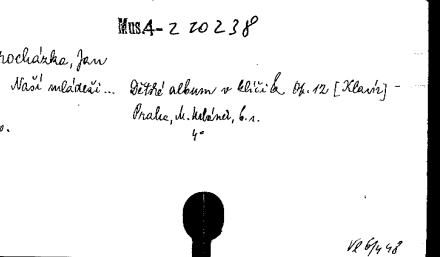 Mus 4-Z 20 238
rocházka, Jan
Naší mládeži... Dětské album v klíči G Op. 12 [Klavír] -
Praha, M. Urbánek, b.r.
4°
o.
Vl 6/448